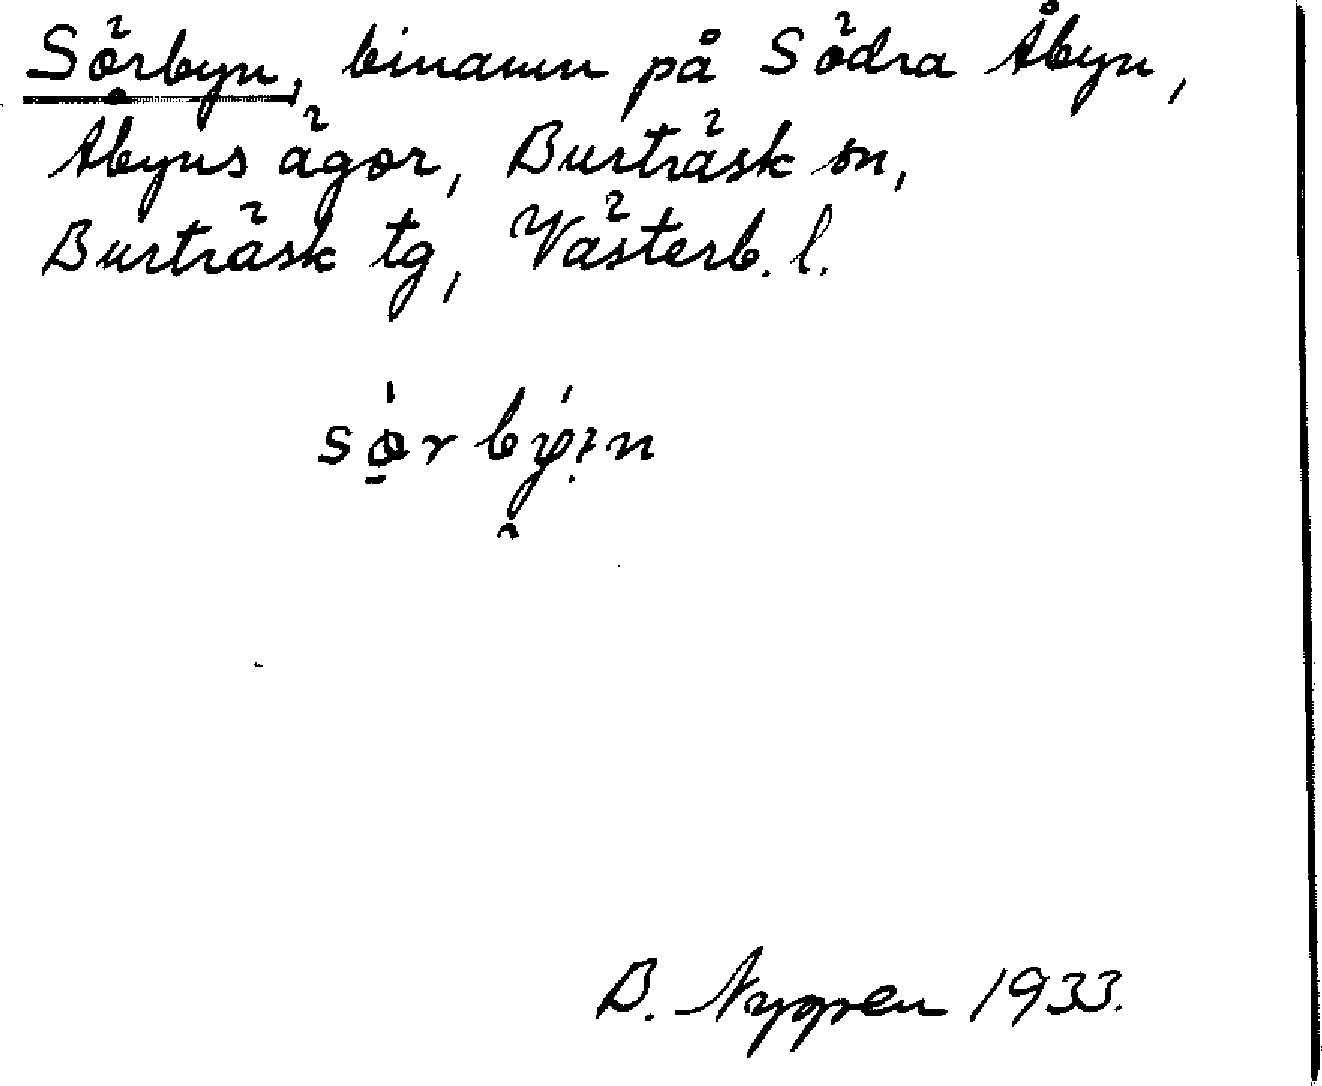 Sörbyn, binamn på Södra Åbyn,
Åbyns ägor, Burträsk sn,
Burträsk tg, Västerb. l.
B. Nygren 1933.